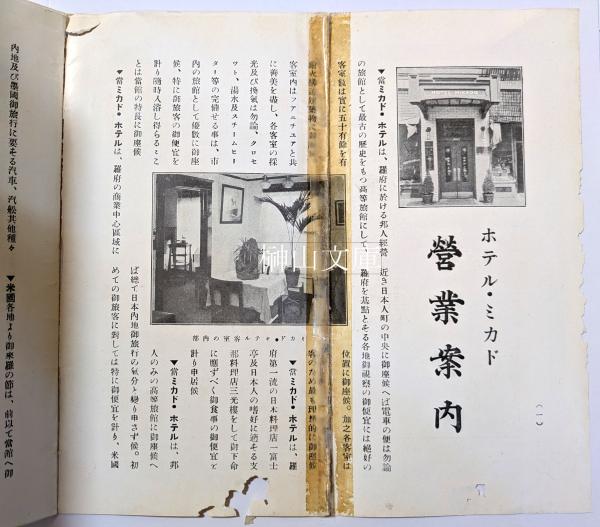 (一)
ホテル・ミカド
營業案内
HOTEL MIKADO
▼當ミカド・ホテルは、羅府に於ける邦人經營
の旅館として最古の歷史をもつ高等旅館にして、
客室數は實に五十有餘を有
客室内はファニチユアと共
に善美を盡し、各客室の採
光及び換氣は勿論、クロセ
ット、湯水及スチームヒー
ター等の完備せる事は、市
内の旅館として優位に御座
候、特に御旅客の御便宜を
計り隨時入浴し得らるゝこ
とは當館の特長に御座候
▼當ミカド・ホテルは、羅府の商業中心區域に
近き日本人町の中央に御座候へば電車の便は勿論
羅府を基點とする各地御視察の御便宜には絶好の
位置に御座候。加之各客室は
客のため最も理想的に
▼當ミカド・ホテルは、羅
府第一流の日本料理店一富士
亭及日本人の嗜好に適する支
那料理店三光樓をして御下命
に應ずべく御食事の御便宜を
計り申居候
▼當ミカド・ホテルは、邦
人のみの高等旅館に御座候へ
ば總て日本内地御旅行の氣分と變り申さず候。初
めての御旅客に對しては特に御便宜を計り、米國
ミカド・ホテル客室の内部
榊山文庫
内地及び墨國御旅行に要する汽車、汽船其他種々
▼米國各地より御來羅の節は、前以て當館へ御